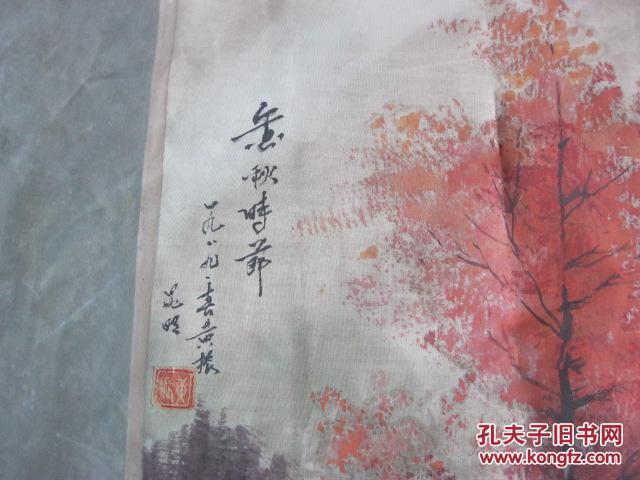 金秋時節
一九八九·春黄振
晁明
孔夫子旧书网
www.kongfz.com